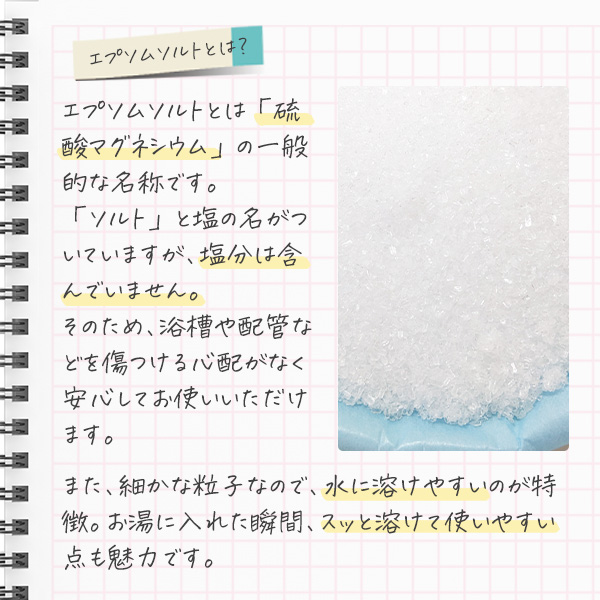 エプソムソルトとは?
エプソムソルトとは「硫
酸マグネシウム」の一般
的な名称です。
「ソルト」と塩の名がつ
いていますが、塩分は含
んでいません。
そのため、浴槽や配管な
どを傷つける心配がなく
安心してお使いいただけ
ます。
また、細かな粒子なので、水に溶けやすいのが特
徴。お湯に入れた瞬間、スッと溶けて使いやすい
点も魅力です。